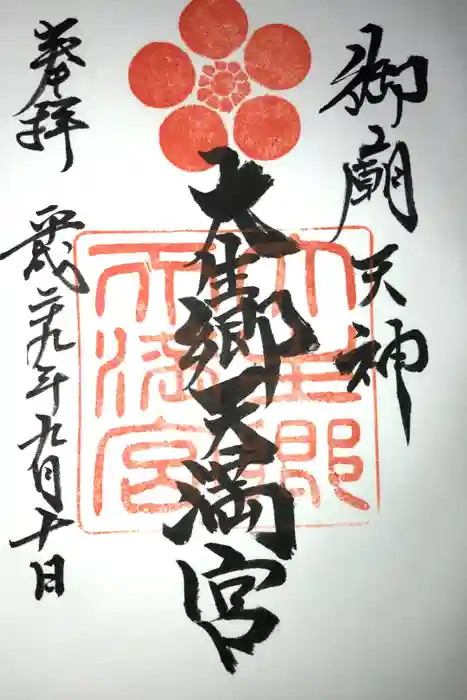 御廟天神
大生郷天満宮
奉拝
平成二十九年九月十日
大生郷
天満宮